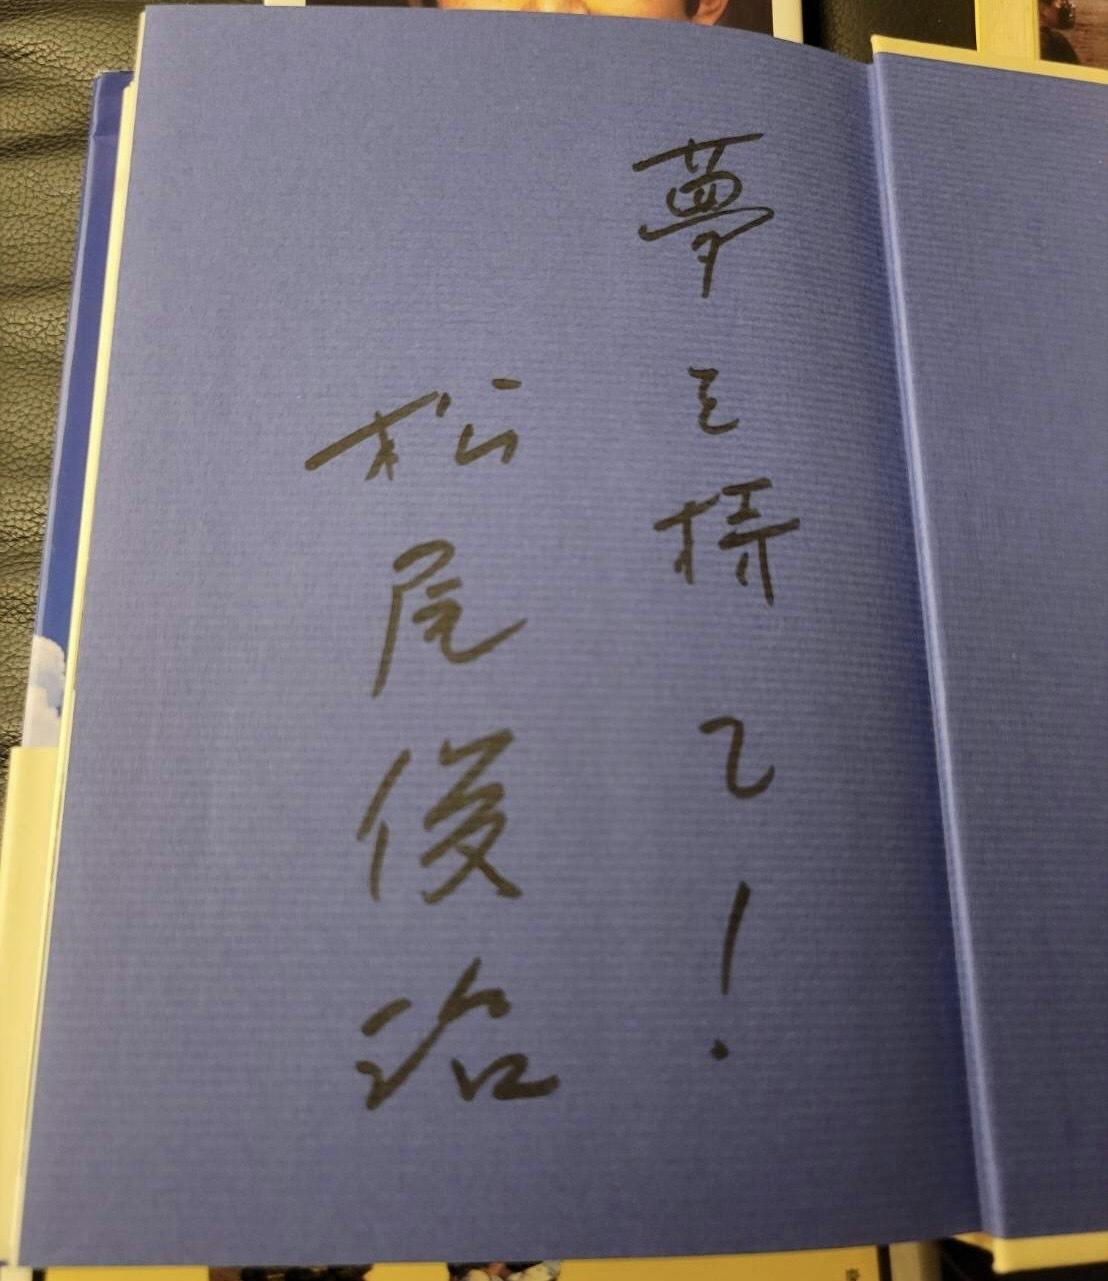 夢を持て!
松尾俊治